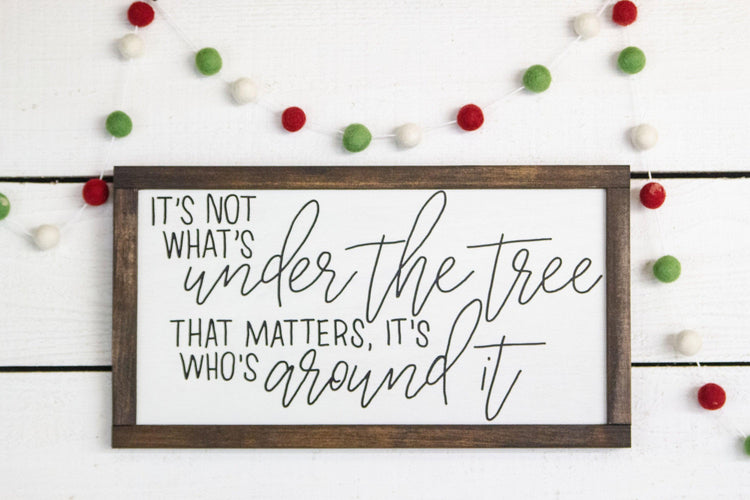 IT'S NOT
WHAT'S
under the tree
THAT MATTERS, IT'S
WHO'S around it